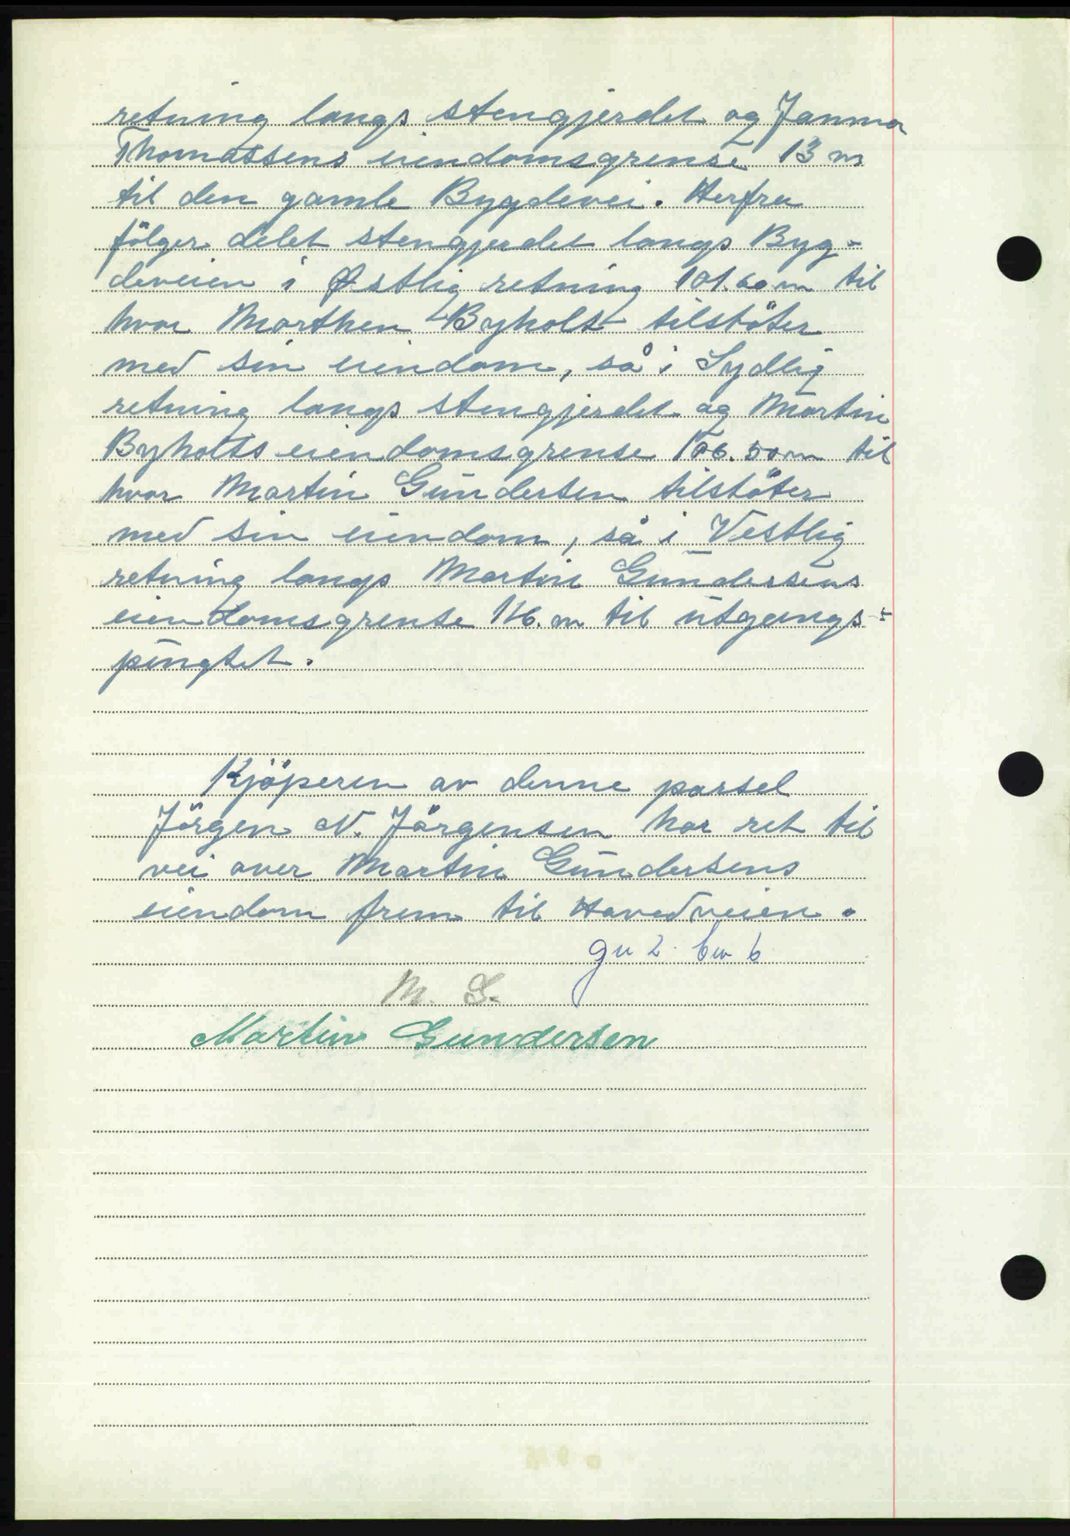 retning langs stengjerdet og Janna
Thomassens eiendomsgrense 13 m
til den gamle Bygdevei. Herfra
følger delet stengjerdet langs Byg-
deveien i Østlig retning 101.60 m til
hvor Marthen Byholt tilstöter
med sin eiendom, så i Sydlig
retning langs stengjerdet og Martin
Byholts eiendomsgrense 106.50 m til
hvor Martin Gundersen tilstöter
med sin eiendom, så i Vestlig
retning langs Martin Gundersens
eiendomsgrense 116. m til utgangs-
pungtet.
Kjöperen av denne parsel
Jörgen N. Jörgensen har ret til
vei over Martin Gundersens
eiendom frem til Hovedveien.
gn 2. bn 6
M. G.
Martin Gundersen